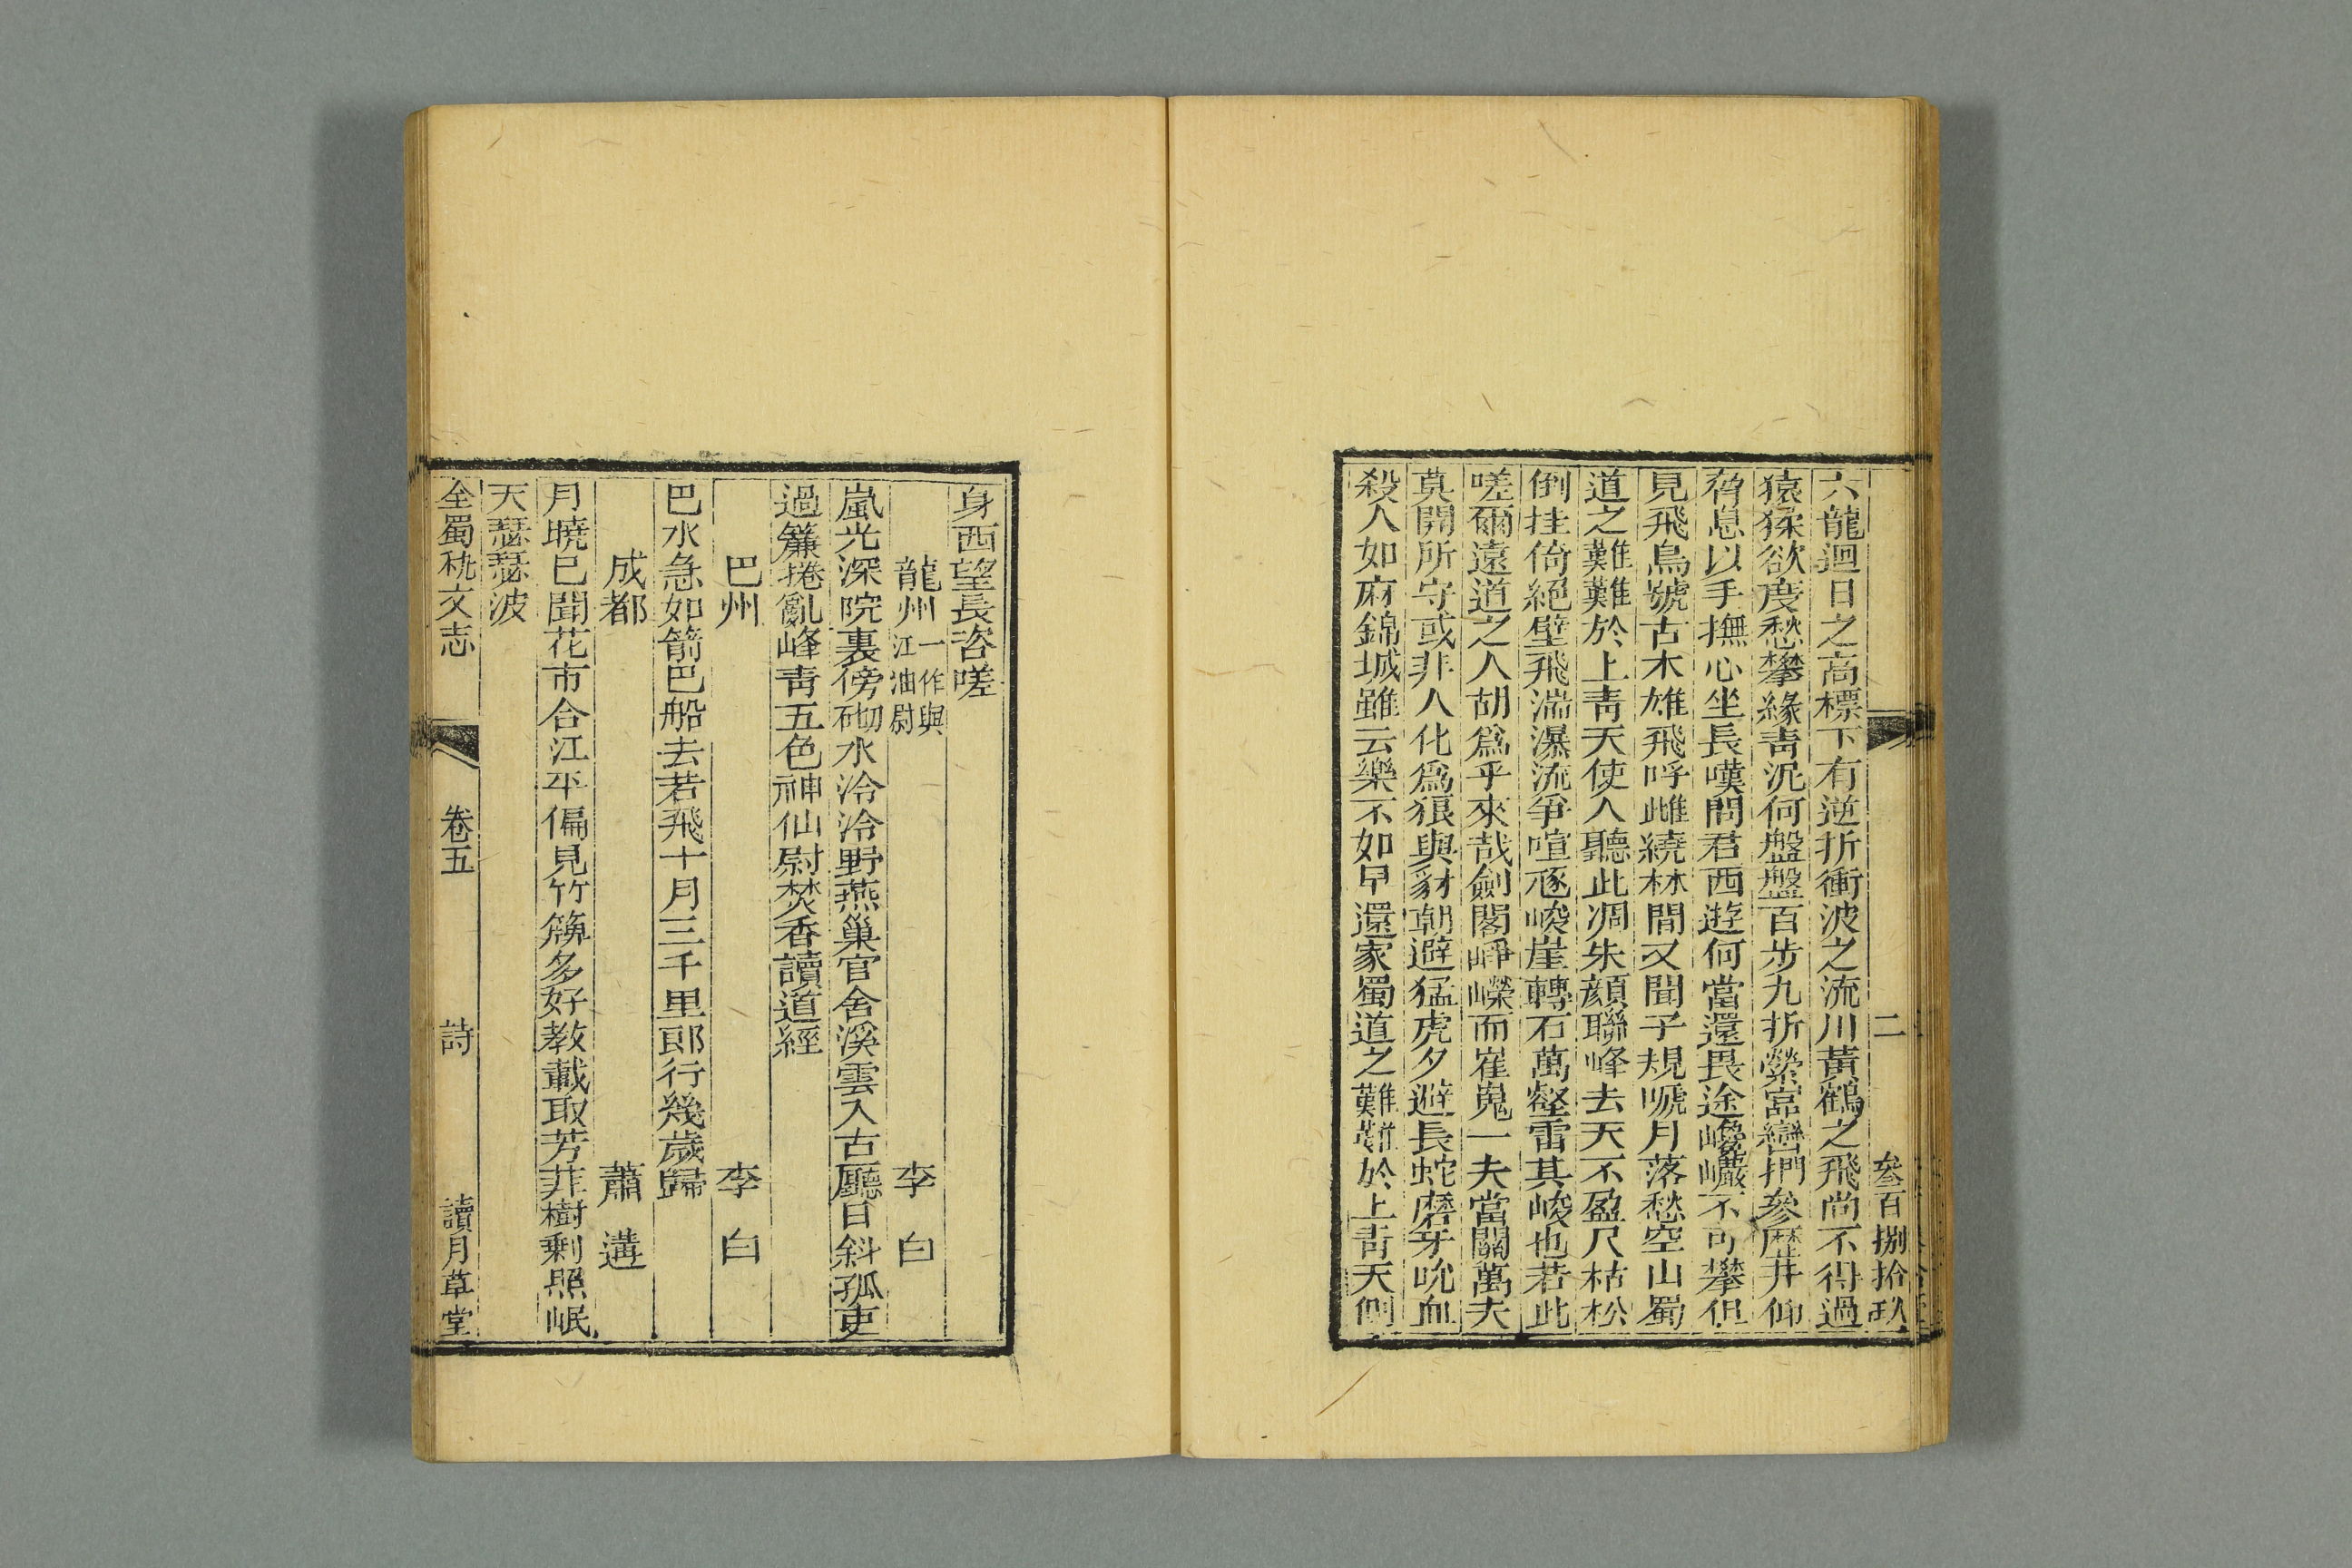 二 叄百捌拾玖
六龍迴日之高標下有逆折衝波之流川黃鶴之飛尚不得過
猿猱欲度愁攀緣靑泥何盤盤百步九折縈巖巒捫參歷井仰
脅息以手撫心坐長嘆問君西遊何當還畏途巉巖不可攀但
見飛鳥號古木雄飛呼雌繞林間又聞子規嗁月落愁空山蜀
道之難難於上靑天使人聽此凋朱顏聯峰去天不盈尺枯松
倒挂倚絕壁飛湍瀑流爭喧豗峻崖轉石萬壑雷其峻也若此
嗟爾遠道之人胡爲乎來哉劍閣崢嶸而崔嵬一夫當關萬夫
莫開所守或非人化爲狼與豺朝避猛虎夕避長蛇磨牙吮血
殺人如麻錦城雖云樂不如早還家蜀道之難難於上靑天側
身西望長咨嗟
龍州 一作與江油尉 李白
嵐光深院裏傍砌水泠泠野燕巢官舍溪雲入古廳日斜孤吏
過簾捲亂峰靑五色神仙尉焚香讀道經
巴州 李白
巴水急如箭巴船去若飛十月三千里郎行幾歲歸
成都 蕭遘
月曉已聞花市合江平偏見竹簰多好教載取芳菲樹剩照岷
天瑟瑟波
全蜀秇文志 卷五 詩 讀月草堂